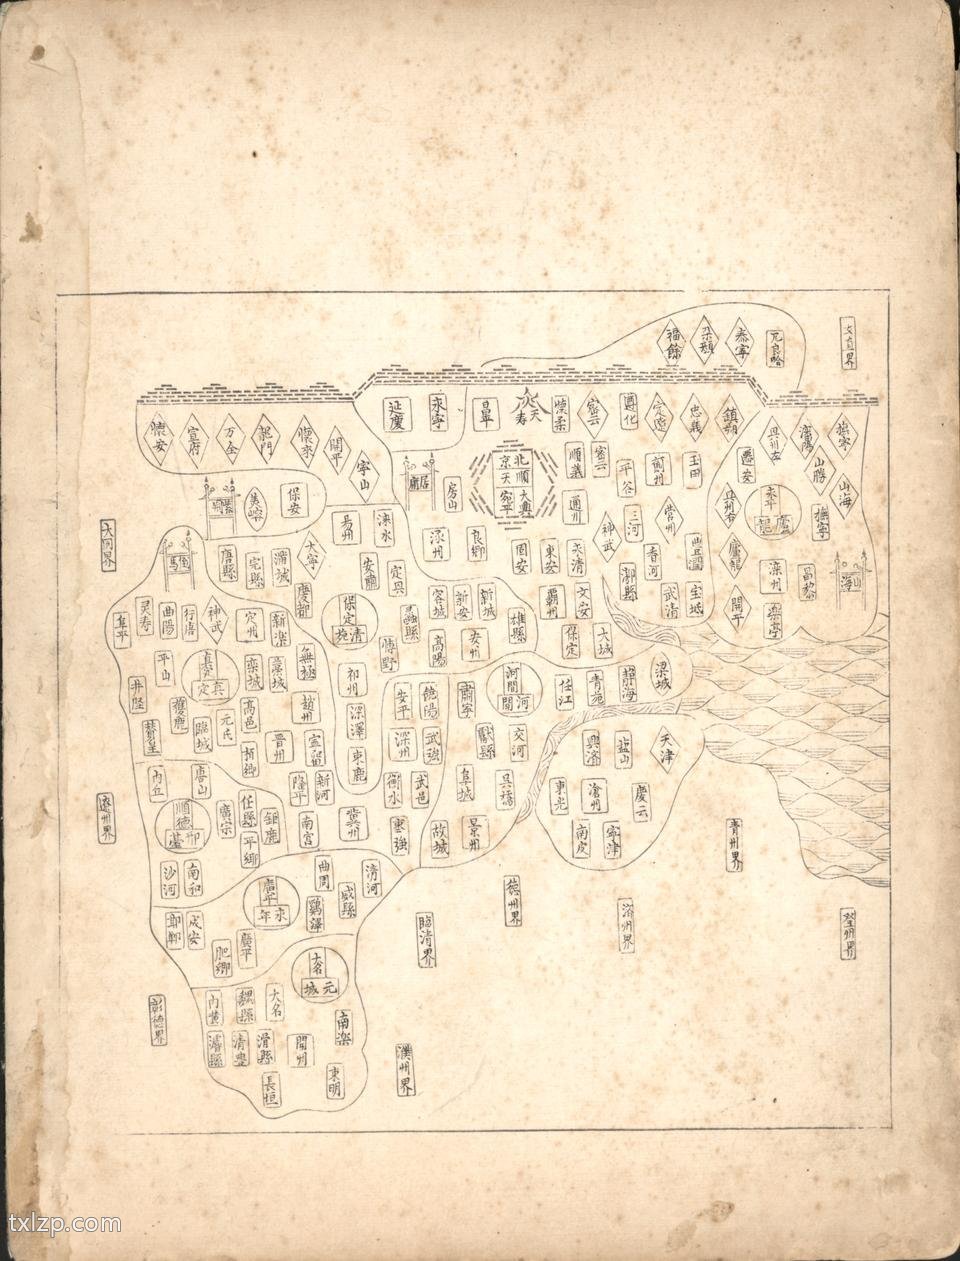 福餘
朶顔
泰寧
兀良哈
懷安
宣府
万全
龍門
懷來
開平
寧山
延慶
永寧
昌平
天壽
懷柔
密云
遵化
定邊
忠義
鎮朔
撫寧
山勝
山海
遷安
永平
盧龍
撫寧
山海
北京
順天
大興
宛平
居庸
房山
順義
密云
平谷
薊州
玉田
通州
三河
營州
神武
香河
豐潤
盧龍
灤州
昌黎
開平
樂亭
紫荊
美峪
保安
易州
淶水
涿州
良鄉
固安
東安
永清
漷縣
武清
宝坻
大同界
倒馬
唐縣
完縣
蒲城
大寧
慶都
安肅
定興
容城
新安
新城
雄縣
霸州
文安
保定
大城
阜平
灵寿
曲陽
行唐
神武
定州
新楽
保定
清苑
蠡縣
博野
高陽
安州
平山
真定
真定
欒城
藁城
無極
祁州
安平
饒陽
肅寧
河間
河間
任江
青苑
靜海
梁城
井陘
贊皇
獲鹿
臨城
元氏
高邑
柏鄉
趙州
晉州
深澤
束鹿
深州
武強
獻縣
交河
興濟
塩山
天津
內丘
唐山
隆平
新河
衡水
武邑
阜城
吳橋
東光
滄州
慶云
遼州界
順德
邢臺
廣宗
任縣
平鄉
鉅鹿
南宮
冀州
棗強
故城
景州
南皮
寧津
青州界
沙河
南和
廣平
永年
曲周
雞澤
威縣
清河
邯鄲
成安
肥鄉
廣平
臨清界
德州界
濟州界
大名
元城
內黃
魏縣
大名
南楽
彰德界
濬縣
清豊
滑縣
開州
長垣
東明
濮州界
txlzp.com